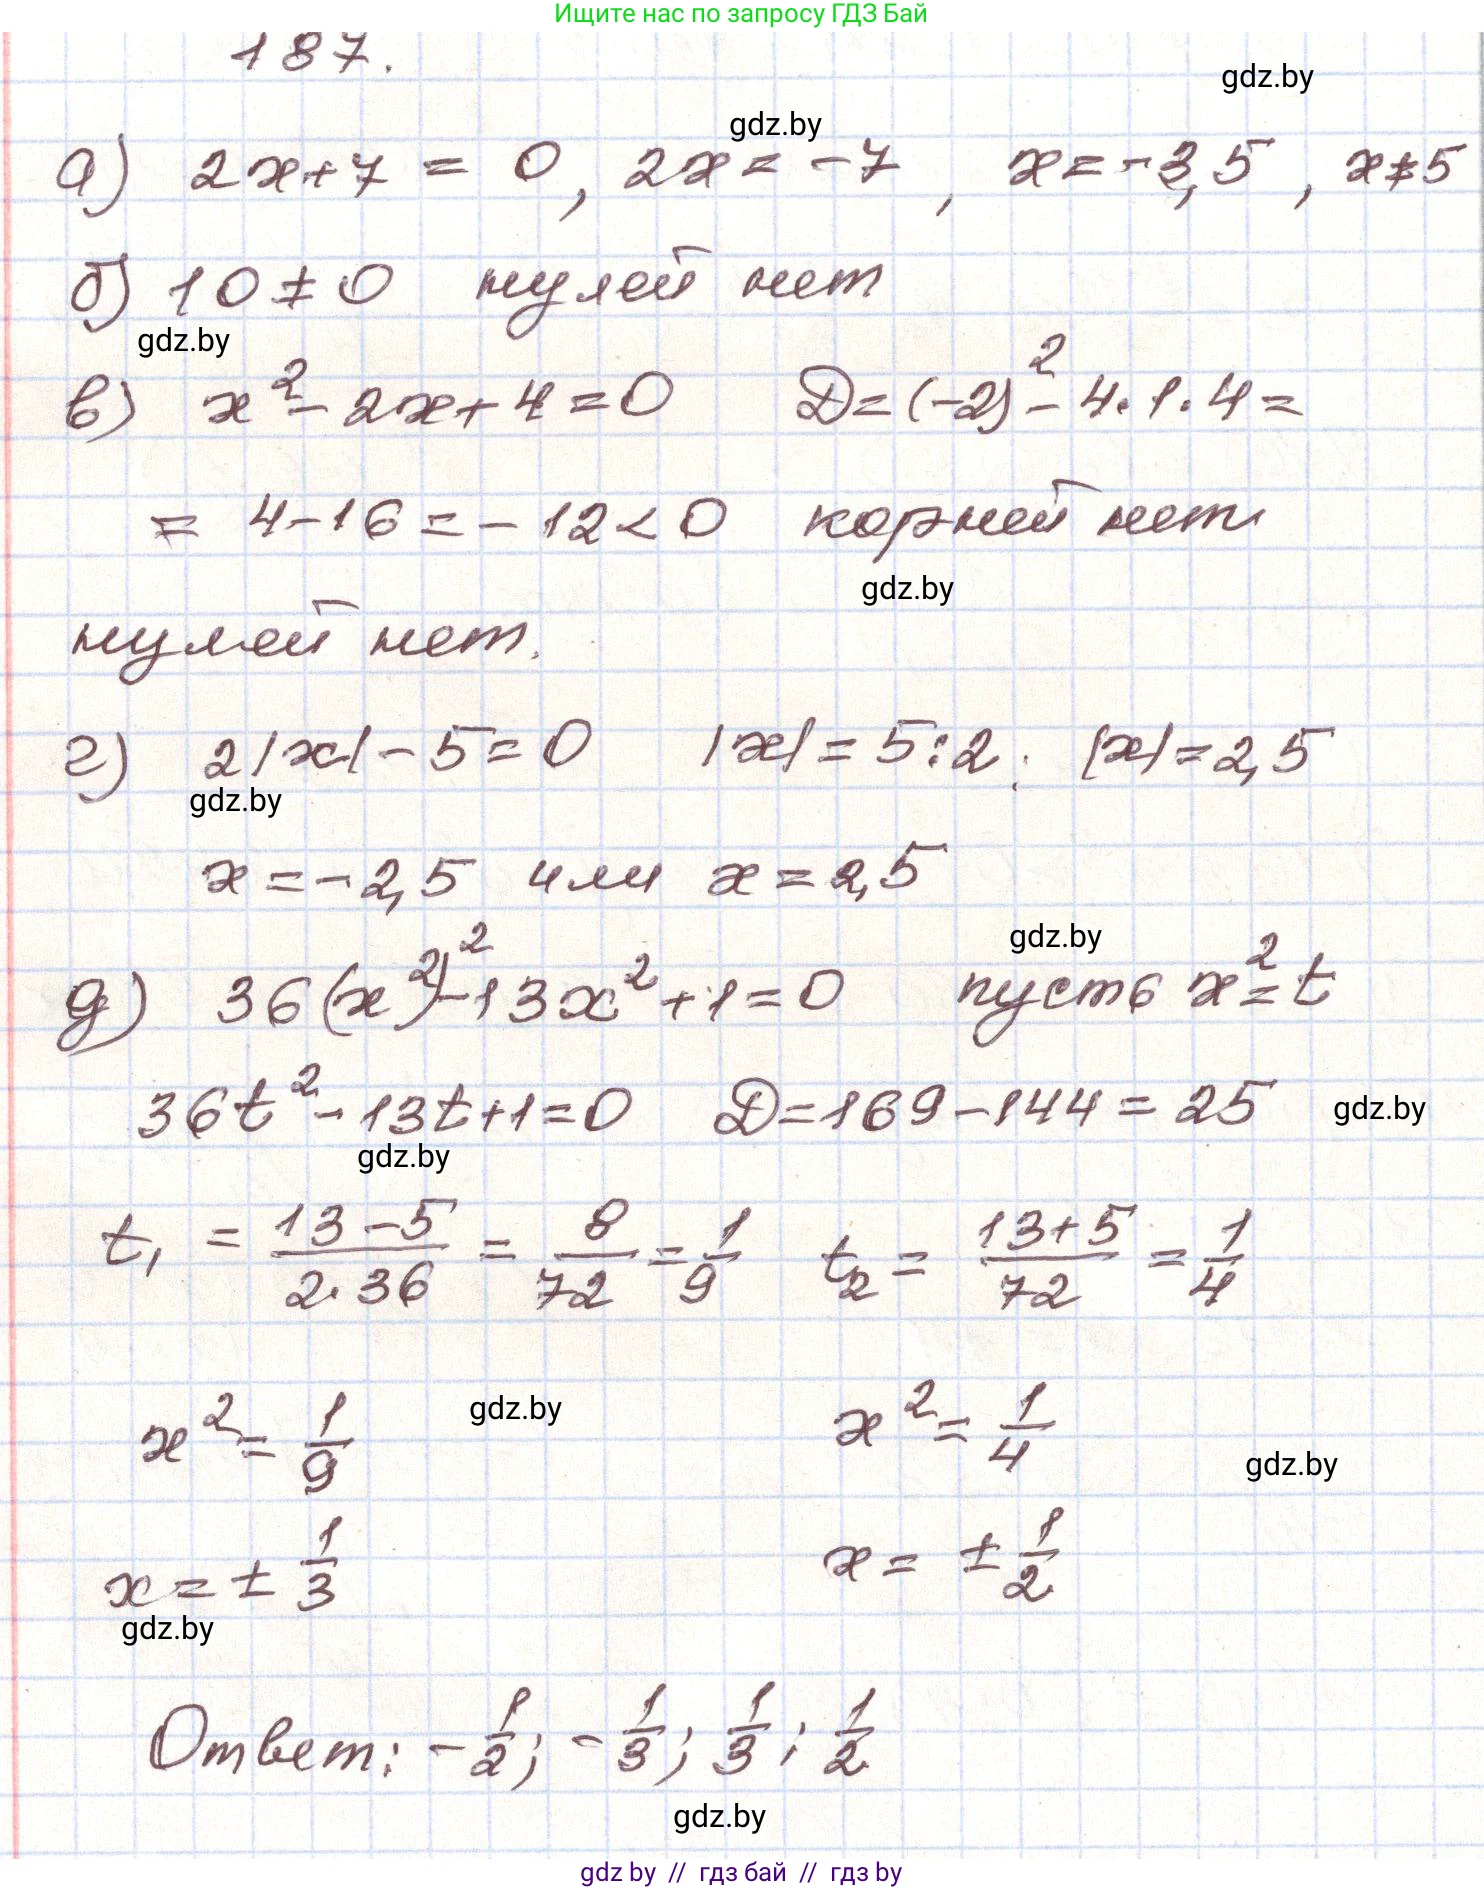 Ищите нас по запросу ГДЗ Бай
187.
gdz.by
gdz.by
а) 2x+7 = 0, 2x = -7, x = -3,5, x≠5
б) 10≠0 нулей нет
gdz.by
в) x² - 2x + 4 = 0 D = (-2)² - 4·1·4 =
= 4-16 = -12 < 0 корней нет
gdz.by
нулей нет.
г) 2|x| - 5 = 0 |x| = 5:2; |x| = 2,5
gdz.by
x = -2,5 или x = 2,5
gdz.by
д) 36(x²)² - 13x² + 1 = 0 пусть x² = t
36t² - 13t + 1 = 0 D = 169 - 144 = 25 gdz.by
gdz.by
t₁ = (13-5)/(2·36) = 8/72 = 1/9 t₂ = (13+5)/72 = 1/4
x² = 1/9 gdz.by x² = 1/4
gdz.by
x = ± 1/3 x = ± 1/2
gdz.by
Ответ: -1/2; -1/3; 1/3; 1/2
gdz.by
gdz by // гдз бай // гдз by